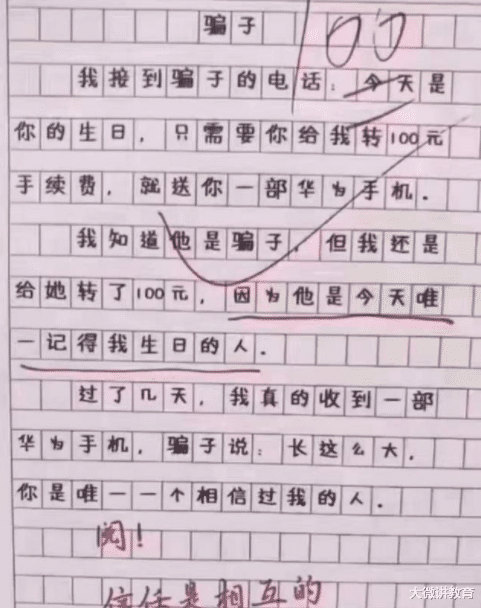 骗子 100
我接到骗子的电话：今天是
你的生日，只需要你给我转100元
手续费，就送你一部华为手机．
我知道他是骗子，但我还是
给她转了100元，因为他是今天唯
一记得我生日的人．
过了几天，我真的收到一部
华为手机，骗子说：长这么大，
你是唯一一个相信过我的人．
阅！
信任是相互的
大微讲教育